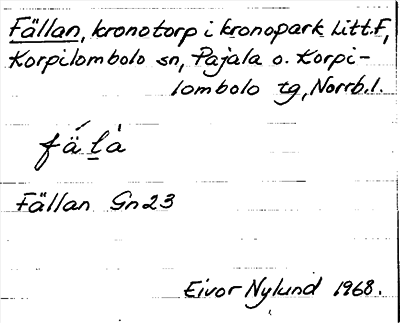 Fällan, kronotorp i kronopark Litt.F,
Korpilombolo sn, Pajala o. Korpi-
lombolo tg, Norrb.l.
fä́l̲à
Fällan Gn23
Eivor Nylund 1968.